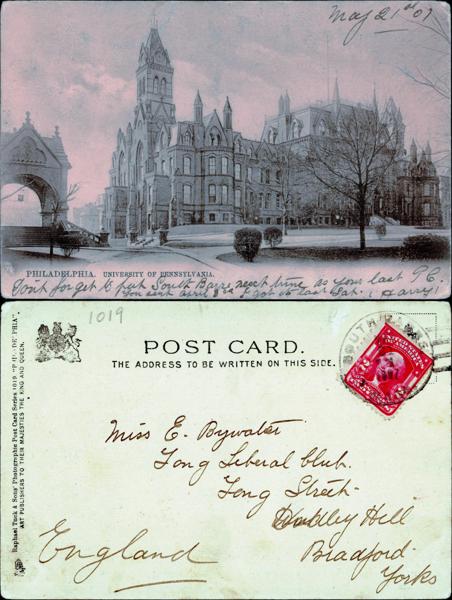 May 21st 07
PHILADELPHIA. UNIVERSITY OF PENNSYLVANIA.
Don't forget to put South Barre next time as your last P.C.
You sent april 8th I got it last Sat. (Harry)
1019
POST CARD.
THE ADDRESS TO BE WRITTEN ON THIS SIDE.
Raphael Tuck & Sons' Photographic Post Card Series 1019 "PHILADELPHIA".
ART PUBLISHERS TO THEIR MAJESTIES THE KING AND QUEEN.
SOUTH BARRE
Miss E. Bywater
Tong Liberal Club.
Tong Street
Dudley Hill
Bradford
Yorks
England